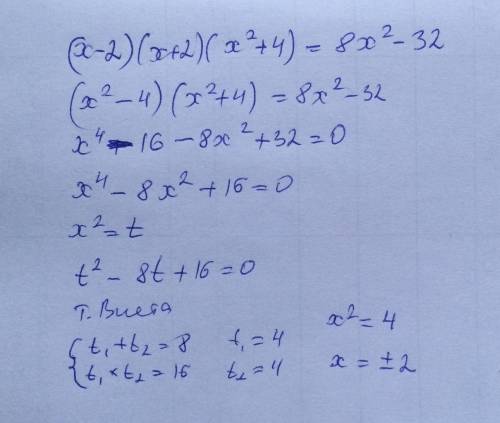 (x-2)(x+2)(x²+4) = 8x²-32
(x²-4)(x²+4) = 8x²-32
x⁴-16-8x²+32=0
x⁴-8x²+16=0
x²=t
t²-8t+16=0
Т. Виета
{t₁+t₂=8 t₁=4 x²=4
{t₁×t₂=16 t₂=4 x=±2